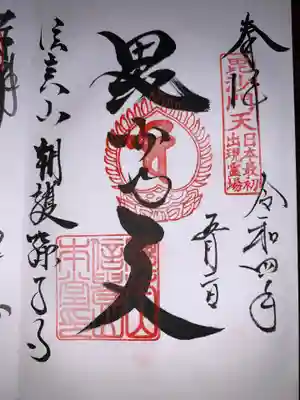 奉拝
毘沙門天
日本最初
出現霊場
令和四年
五月二日
毘沙門天
信貴山 朝護孫子寺